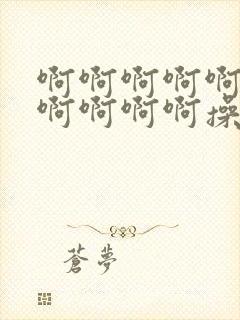 啊啊啊啊啊
啊啊啊啊操
蒼夢